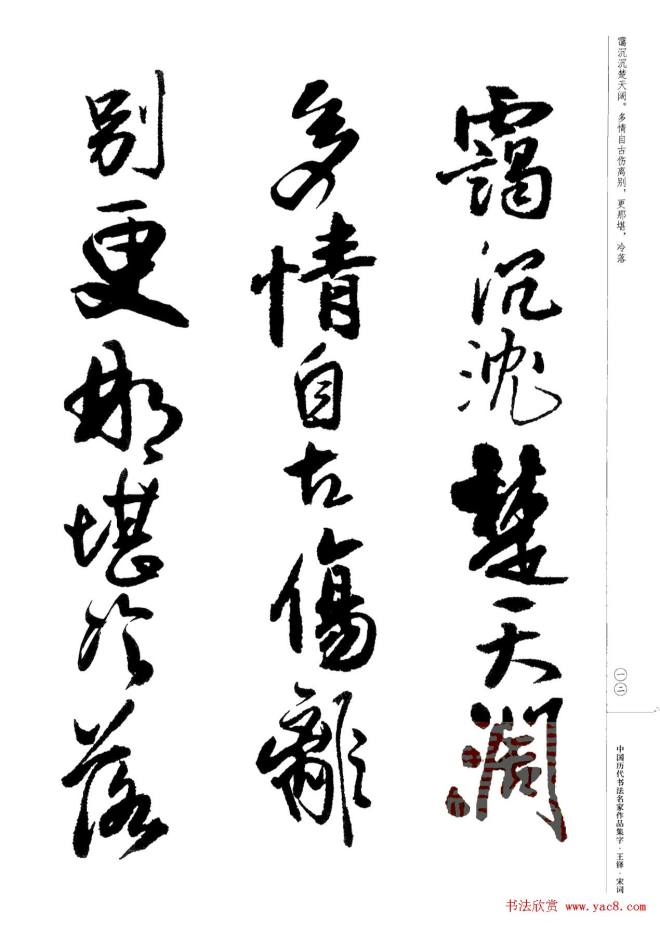 霭沉沉楚天阔。多情自古伤离别，更那堪，冷落
靄沉沈楚天闊
多情自古傷離
別更那堪冷落
一二
中国历代书法名家作品集字·王铎·宋词
书法欣赏 www.yac8.com